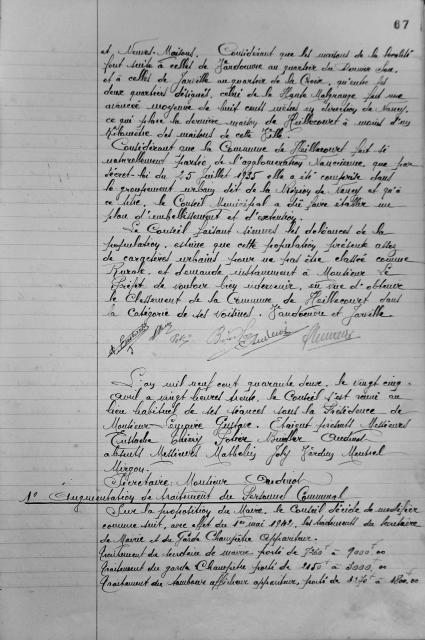 67
et Neuves-Maisons. Considérant que les maisons de la localité
font suite à celles de Vandoeuvre au quartier du
et à celles de Jarville au quartier de la Croix, qu'entre les
deux quartiers désignés, celui de la Haute Malgrange fait une
avancée moyenne de huit cents mètres en direction de Nancy,
ce qui place la dernière maison de Heillecourt à moins d'un
kilomètre des maisons de cette Ville.
Considérant que la Commune de Heillecourt fait si
naturellement partie de l'agglomération Nancéienne, que par
décret-loi du 25 juillet 1935 elle a été comprise dans
le groupement urbain dit de la Région de Nancy et qu'à
ce titre, le Conseil Municipal a dû faire établir un
plan d'embellissement et d'extension.
Le Conseil faisant siennes les doléances de la
population, estime que cette population présente assez
de caractères urbains pour ne pas être classée comme
Rurale, et demande instamment à Monsieur le
Préfet de vouloir bien intervenir en vue d'obtenir
le Classement de la Commune de Heillecourt dans
la Catégorie de ses voisines. Vandoeuvre et Jarville.
L'an mil neuf cent quarante deux, le vingt cinq
avril à vingt heures trente, le Conseil s'est réuni au
lieu habituel de ses séances sous la Présidence de
Monsieur Gustave. Etaient présents Messieurs
Eustache Thiéry Audinot
absents Messieurs Mathelin Joly Jardin Meutrel
Secrétaire: Monsieur Audinot
1° Augmentation de traitement du Personnel Communal
Sur la proposition du Maire, le Conseil décide de modifier
comme suit, avec effet du 1er mai 1942, les traitements du Secrétaire
de Mairie et du Garde Champêtre appariteur.
traitement du secrétaire de mairie porté de à 9000f,00
traitement du garde Champêtre porté de 2150f à 3000,00
traitement du tambour afficheur appariteur, porté de à 1800,00